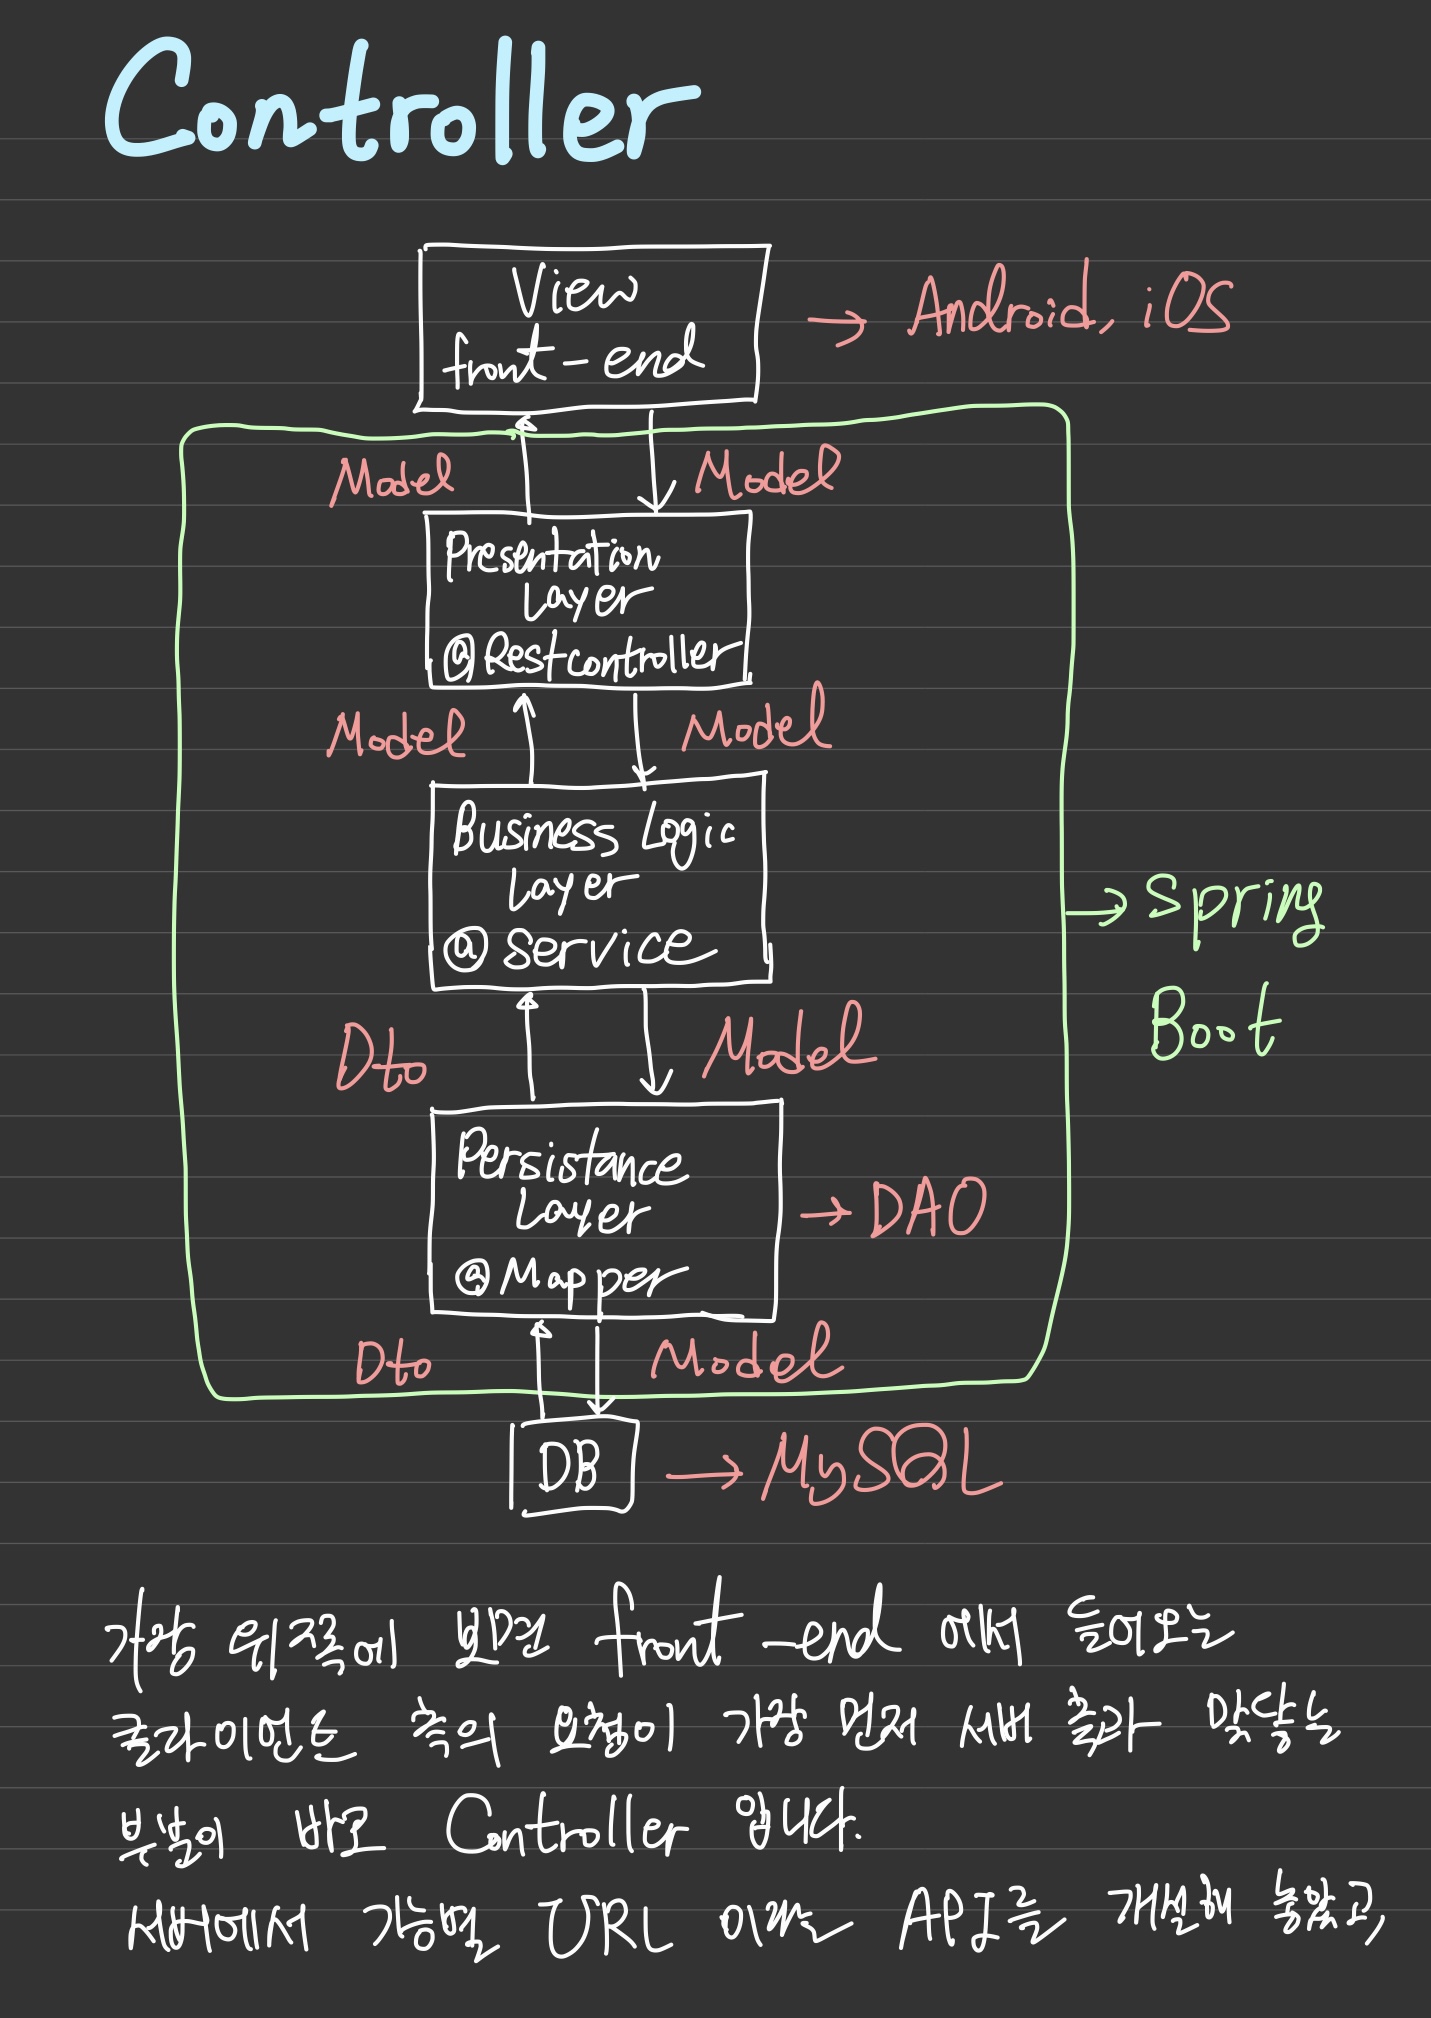 Controller
View
front-end
→ Android, iOS
Model
Model
Presentation
Layer
@Restcontroller
Model
Model
Business Logic
Layer
@Service
→ Spring
Boot
Dto
Model
Persistance
Layer
@Mapper
→ DAO
Dto
Model
DB
→ MySQL
가장 위쪽에 보면 front-end 에서 들어오는
클라이언트 측의 요청이 가장 먼저 서버 측과 맞닿는
부분이 바로 Controller 입니다.
서버에서 기능별 URL 이라는 API를 개설해 놓았고,